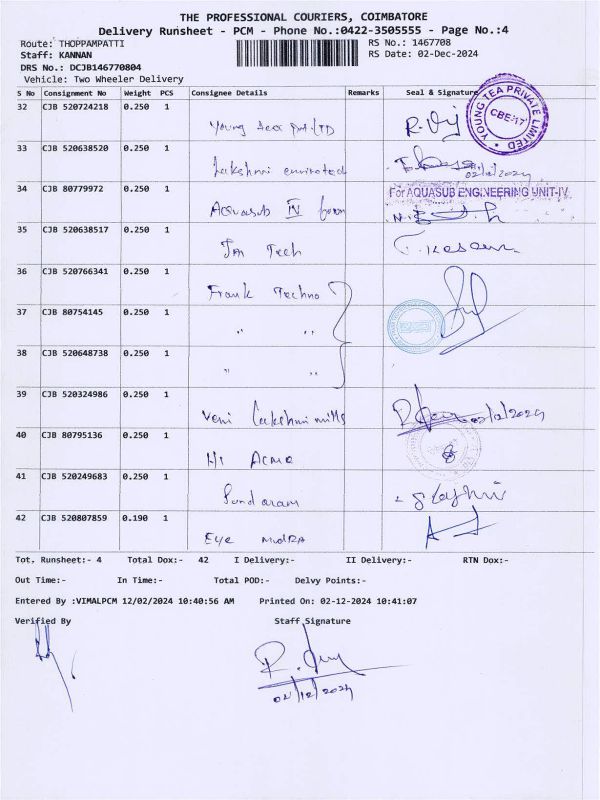 THE PROFESSIONAL COURIERS, COIMBATORE
Delivery Runsheet - PCM - Phone No.:0422-3505555 - Page No.:4
Route: THOPPAMPATTI RS No.: 1467708
Staff: KANNAN RS Date: 02-Dec-2024
DRS No.: DCJB146770804
Vehicle: Two Wheeler Delivery
S No Consignment No Weight PCS Consignee Details Remarks Seal & Signature
32 CJB 520724218 0.250 1
YOUNG TEA PRIVATE LIMITED CBE-17
R. Vij
33 CJB 520638520 0.250 1
Lakshmi
34 CJB 80779972 0.250 1 For AQUASUB ENGINEERING UNIT-IV
Acquasub IV
35 CJB 520638517 0.250 1
Tech
36 CJB 520766341 0.250 1
Frank Techno
37 CJB 80754145 0.250 1
" "
38 CJB 520648738 0.250 1
" "
39 CJB 520324986 0.250 1
Veni Lakshmi mills 02/12/2024
40 CJB 80795136 0.250 1
Acma
41 CJB 520249683 0.250 1
Sundaram
42 CJB 520807859 0.190 1
Eye
Tot. Runsheet:- 4 Total Dox:- 42 I Delivery:- II Delivery:- RTN Dox:-
Out Time:- In Time:- Total POD:- Delvy Points:-
Entered By :VIMALPCM 12/02/2024 10:40:56 AM Printed On: 02-12-2024 10:41:07
Verified By Staff Signature
02/12/2024